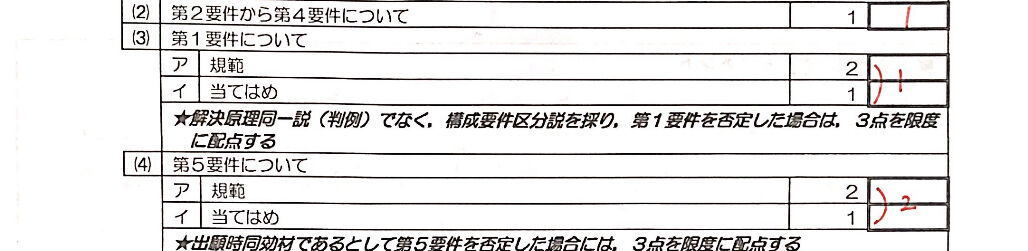 (2) 第2要件から第4要件について 1 1
(3) 第1要件について
ア 規範 2
イ 当てはめ 1 ) 1
★解決原理同一説（判例）でなく，構成要件区分説を採り，第1要件を否定した場合は，3点を限度
に配点する
(4) 第5要件について
ア 規範 2
イ 当てはめ 1 ) 2
★出願時同効材であるとして第5要件を否定した場合には，3点を限度に配点する